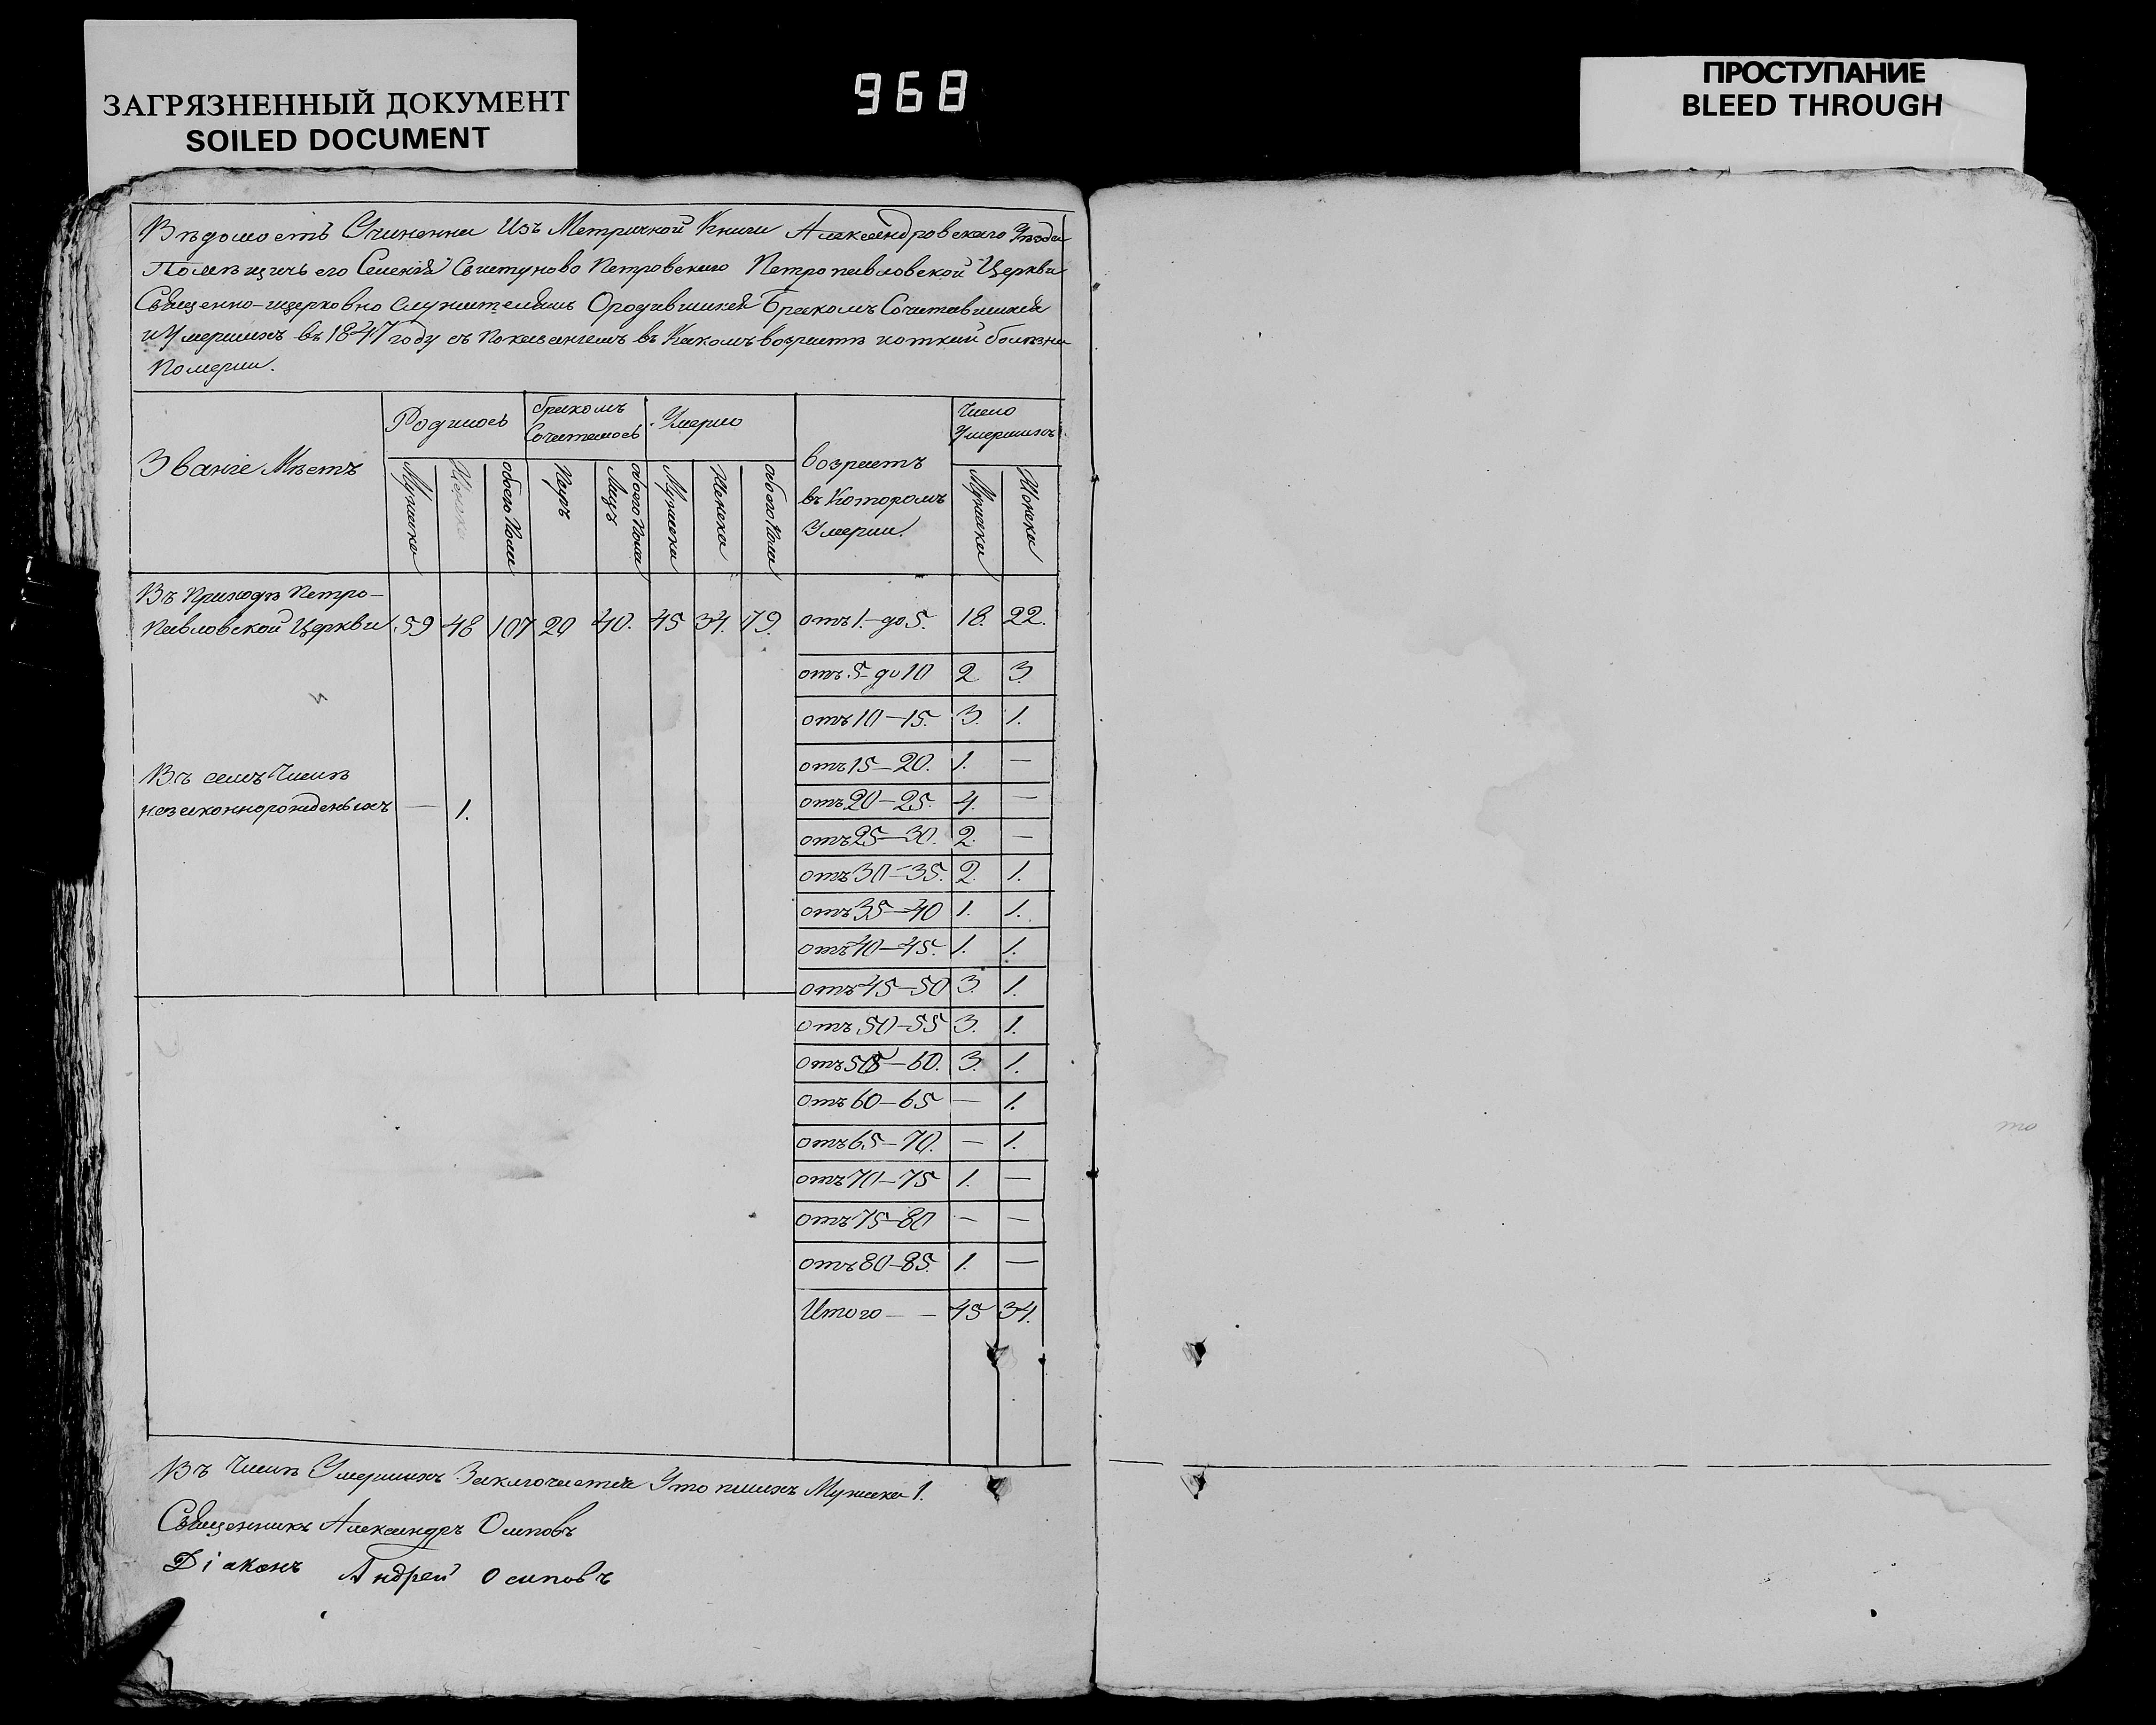 ЗАГРЯЗНЕННЫЙ ДОКУМЕНТ
SOILED DOCUMENT
968
ПРОСТУПАНИЕ
BLEED THROUGH
Вѣдомость Сочиненна Изъ Метричной Книги Александровскаго Уѣзда
Помѣщичьего Селенія Свистуново Петровскаго Петропавловской Церкви
Священно-ицерковно Служителямъ Ородившихся Бракомъ Сочитавшихся
и Умершихъ въ 1847 году съ Показаніемъ въ Какомъ возрастѣ и откакой болѣзни
Померли.
Званіе Мѣстъ
Родилось
бракомъ
Сочеталось
Умерло
возрастъ
въ Которомъ
Умерли.
Число
Умершихъ
Мужска
Женска
обоего Пола
Паръ
обоего Пола
Лицъ
Мужска
Женска
обоего Пола
Мужска
Женска
Въ Приходѣ Петро-
Павловской Церкви 59 48 107 20 40. 45 34. 79. отъ 1. до 5. 18. 22.
отъ 5 до 10 2 3
отъ 10 – 15. 3. 1.
отъ 15 – 20. 1. —
отъ 20 – 25. 4. —
отъ 25 – 30. 2. —
отъ 30 – 35. 2. 1.
отъ 35 – 40 1. 1.
отъ 40 – 45. 1. 1.
отъ 45 – 50 3. 1.
отъ 50 – 55 3. 1.
отъ 55 – 60. 3. 1.
отъ 60 – 65 — 1.
отъ 65 – 70. — 1.
отъ 70 – 75 1. —
отъ 75 – 80 — —
отъ 80 – 85. 1. —
Итого — — 45 34.
Въ семъ Числѣ
незаконнорожденыхъ — 1.
Въ Числѣ Умершихъ Заключается Утопшихъ Мужска 1.
Священникъ Александръ Осиповъ
Діаконъ Андрей Осиповъ
то